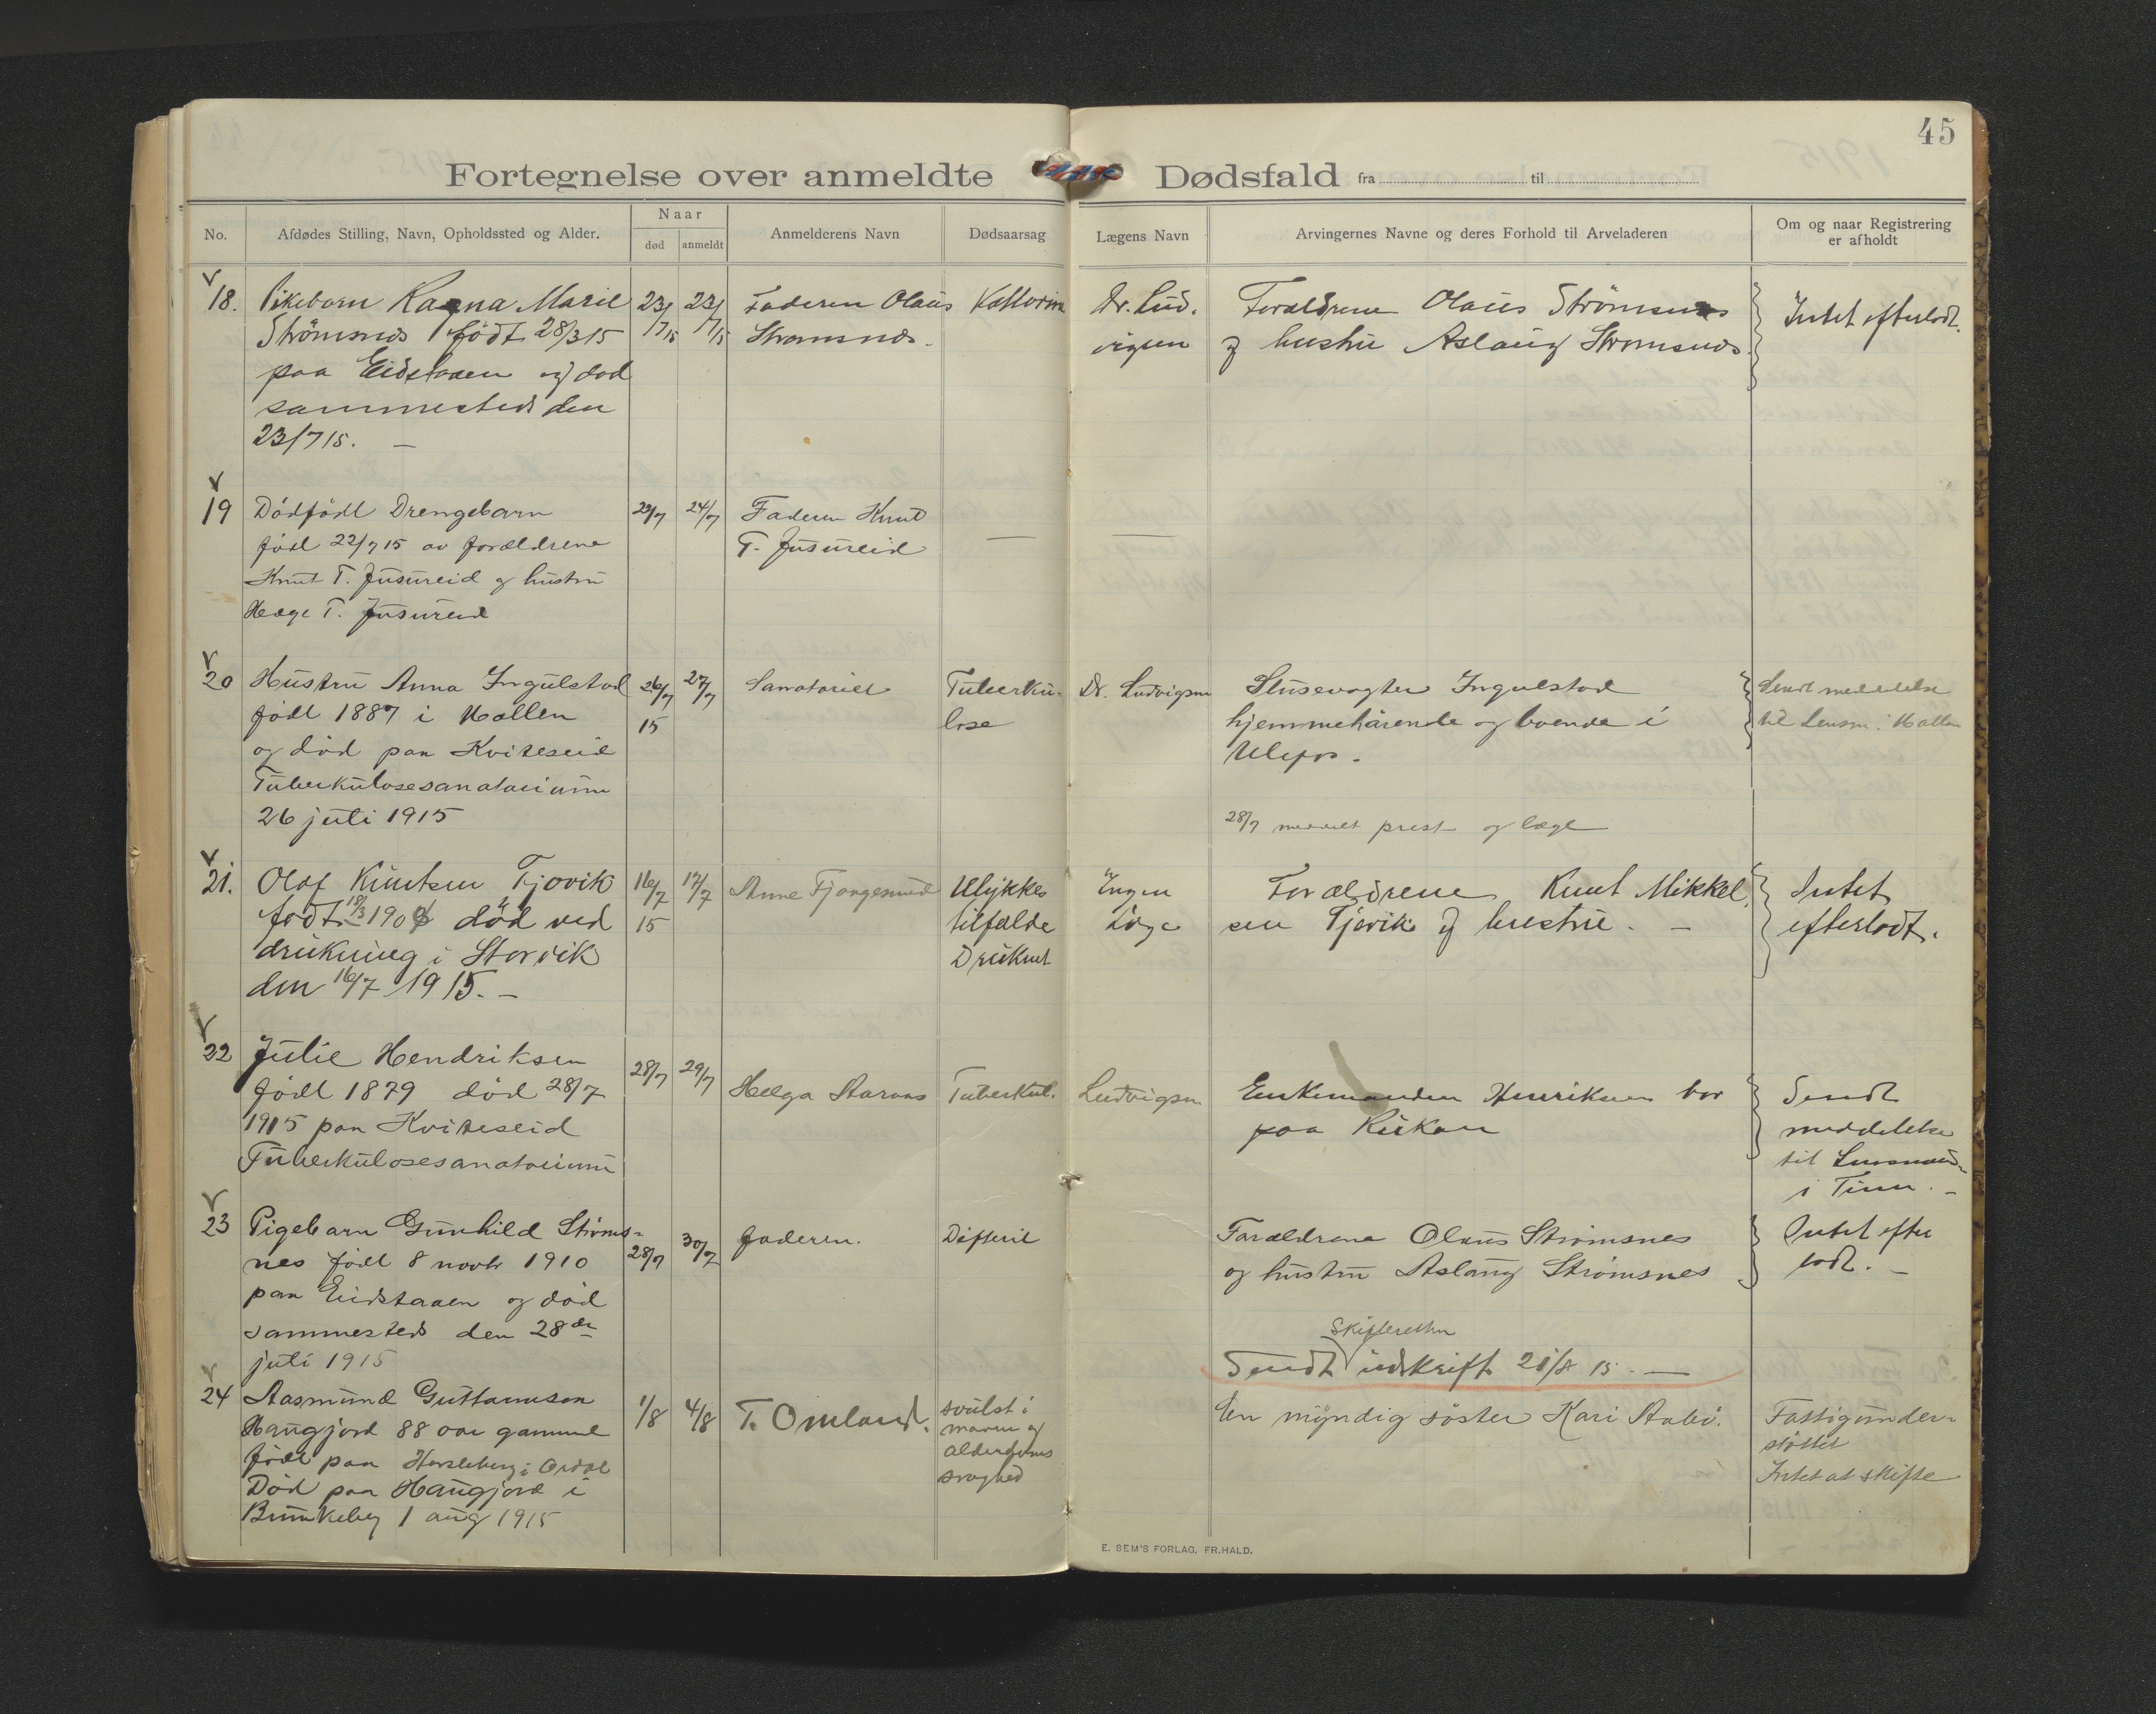 45
Fortegnelse over anmeldte Dødsfald fra til
No.
Afdødes Stilling, Navn, Opholdssted og Alder.
Naar
død
anmeldt
Anmelderens Navn
Dødsaarsag
Lægens Navn
Arvingernes Navne og deres Forhold til Arveladeren
Om og naar Registrering
er afholdt
18.
Pikebarn Ragna Marie
Strömsnes født 28/3 15
paa Eidstaaen og död
sammesteds den
23/7 15. —
23/
7 15
23/
7/15
Faderen Olaus
Stromsnes.
Dr. Lud.
vigsen
Foraldrene Olaus Strömsnes
og hustru Aslaug Stromsnes.
Intet efterladt.
19
Dödfödl Drengebarn
född 22/7 15 av forældrene
Knut T. Jusureid og hustru
Hæge T. Jusureid
24/7
Faderen Knut
T. Jusureid
—
—
20
Hustru Anna Ingulstad
född 1887 i Hollen
og död paa Kviteseid
Tuberkulosesanatorium
26 juli 1915
26/7
15
27/7
Sanatoriet
Tuberku-
lose
Dr. Ludvigsen
Slusevogter Ingulstad
hjemmehörende og boende i
Ulefos.
28/7 meddelt prest og læge
Sendt meddelelse
til Lensm. i Hollen
21.
Olaf Knutsen Tjovik
födt 18/3 190 död ved
drukning i Storvik
den 16/7 1915. —
16/7
15
17/7
Anne Fjongesund
Ulykkes
tilfælde
Druknet
Ingen
Læge
Forældrene Knut Mikkel
sen Tjovik og hustru. —
Intet
efterladt.
22
Julie Hendriksen
född 1879 död 28/7
1915 paa Kviteseid
Tuberkulosesanatorium
28/7
29/7
Helga Staraas
Tuberkul.
Ludvigsen
Enkemanden Henriksen bor
paa Rjukan
Sendt
meddelelse
til Lensmand
i Tinn. —
23
Pigebarn Gunhild Ströms-
nes född 8 novbr 1910
paa Eidstaaen og död
sammesteds den 28de
juli 1915
28/7
30/7
Faderen.
Difterit
Forældrene Olaus Strömsnes
og hustru Aslaug Strömsnes
Intet efter
ladt. —
Skifteretten
Sendt udskrift 21/8 15. —
24
Aasmund Guttormson
Haugjord 88 aar gammel
född paa i
Död paa Haugjord i
Brunkeberg 1 aug 1915
1/8
4/8
T. Omland.
svulst i
maven og
alderdoms
svaghed
En myndig söster Kari Aabö.
Fattigunder-
støttet
Intet at skifte
E. SEM'S FORLAG, FR.HALD.